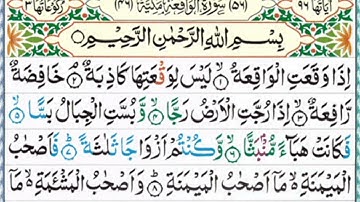 اٰيَاتُهَا ٩٦ (٥٦) سُوْرَةُ الْوَاقِعَةِ مَكِّيَّةٌ (٤٦) رُكُوْعَاتُهَا ٣
بِسْمِ اللّٰهِ الرَّحْمٰنِ الرَّحِيْمِ
اِذَا وَقَعَتِ الْوَاقِعَةُ ۝١ لَيْسَ لِوَقْعَتِهَا كَاذِبَةٌ ۝٢ خَافِضَةٌ
رَّافِعَةٌ ۝٣ اِذَا رُجَّتِ الْاَرْضُ رَجًّا ۝٤ وَّ بُسَّتِ الْجِبَالُ بَسًّا ۝٥
فَكَانَتْ هَبَآءً مُّنْۢبَثًّا ۝٦ وَّ كُنْتُمْ اَزْوَاجًا ثَلٰثَةً ۝٧ فَاَصْحٰبُ
الْمَيْمَنَةِ مَاۤ اَصْحٰبُ الْمَيْمَنَةِ ۝٨ وَ اَصْحٰبُ الْمَشْـَٔمَةِ مَاۤ